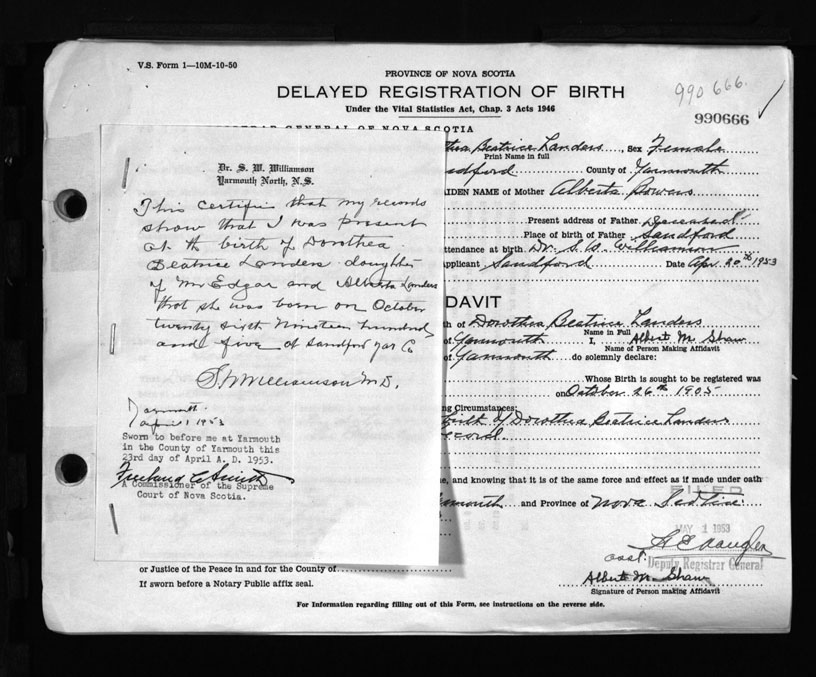 V.S. Form 1—10M-10-50
PROVINCE OF NOVA SCOTIA
DELAYED REGISTRATION OF BIRTH
Under the Vital Statistics Act, Chap. 3 Acts 1946
990666.
990666
GENERAL OF NOVA SCOTIA
Dr. S. W. Williamson
Yarmouth North, N.S.
This certifie that my records
show that I was present
at th birth of Dorothea
Beatrice Landers daughter
of Mr Edgar and Alberta Landers
that she was born on October
twenty sixth Nineteen hundred
and five at Sandford Yar Co
S W Williamson M.D.
Yarmouth
April 1953
Sworn to before me at Yarmouth
in the County of Yarmouth this
23rd day of April A. D. 1953.
A Commissioner of the Supreme
Court of Nova Scotia.
thea Beatrice Landers, Sex Female
Print Name in full
ndford County of Yarmouth
AIDEN NAME of Mother Alberta Powers
Present address of Father Deceased
Place of birth of Father Sandford
ttendance at birth Dr. S. W. Williamson
pplicant Sandford Date Apr 20th 1953
DAVIT
th of Dorothea Beatrice Landers
Name in Full
of Yarmouth I, Albert M Shaw
Name of Person Making Affidavit
of Yarmouth do solemnly declare:
Whose Birth is sought to be registered was
on October 26th 1905
ng Circumstances:
birth of Dorothea Beatrice Landers
record.
e, and knowing that it is of the same force and effect as if made under oath
FILED
armouth and Province of Nova Scotia
MAY 1 1953
Deputy Registrar General
or Justice of the Peace in and for the County of
If sworn before a Notary Public affix seal.
Albert M. Shaw
Signature of Person making Affidavit
For Information regarding filling out of this Form, see instructions on the reverse side.